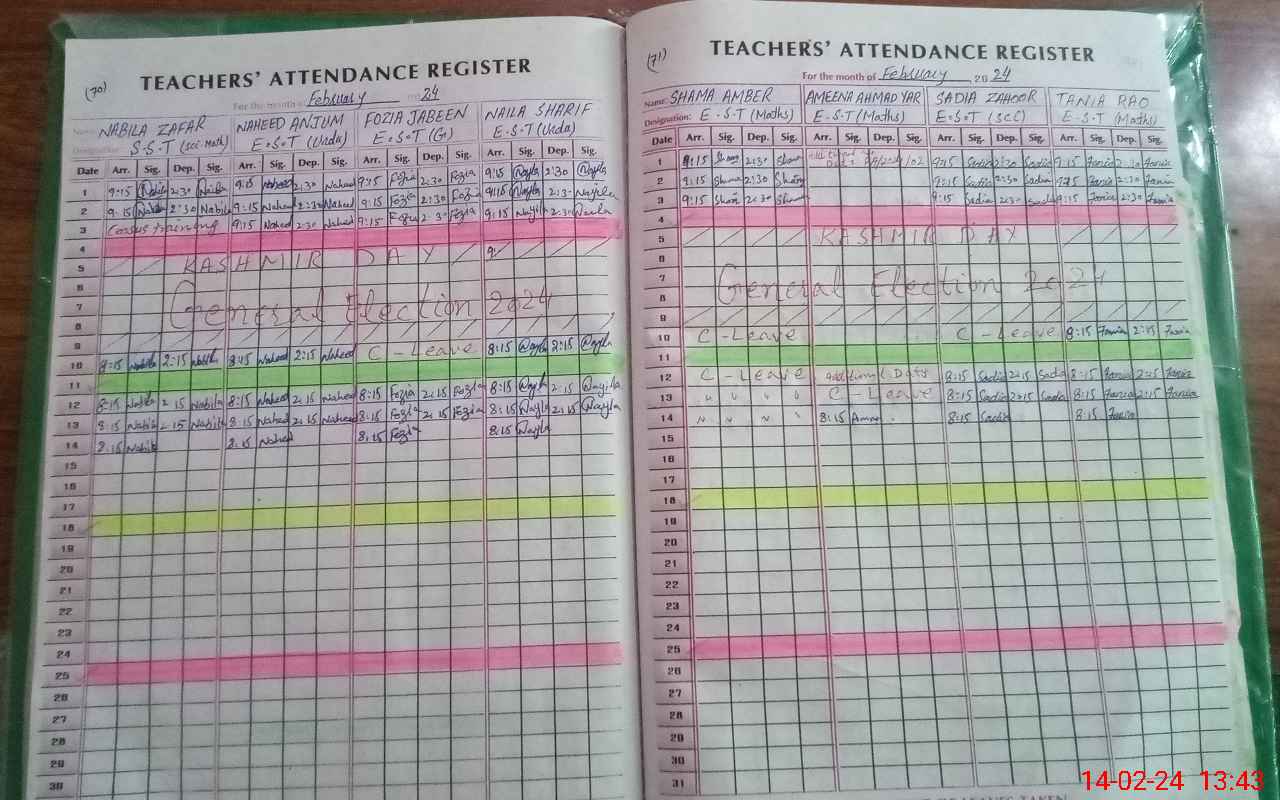 (70)
TEACHERS' ATTENDANCE REGISTER
For the month of February 2024
Name: NABILA ZAFAR NAHEED ANJUM FOZIA JABEEN NAILA SHARIF
Designation: S.S.T (Sci-Math) E.S.T (Urdu) E.S.T (G) E.S.T (Urdu)
Date Arr. Sig. Dep. Sig. Arr. Sig. Dep. Sig. Arr. Sig. Dep. Sig. Arr. Sig. Dep. Sig.
1 9:15 Nabila 2:30 Nabila 9:15 Naheed 2:30 Naheed 9:15 Fozia 2:30 Fozia 9:15 Nayla 2:30 Nayla
2 9:15 2:30 Nabila 9:15 Naheed 2:30 Naheed 9:15 Fozia 2:30 Fozia 9:15 Nayla 2:3 Nayla
3 training 9:15 Naheed 2:30 Naheed 9:15 Fozia 2:30 Fozia 9:15 2:30
4
5 KASHMIR DAY 9:
6
7 General Election 2024
8
9
10 8:15 Nabila 2:15 Nabila 8:15 Naheed 2:15 Naheed C - Leave 8:15 Nayla 2:15 Nayla
11
12 8:15 Nabila 2:15 Nabila 8:15 Naheed 2:15 Naheed 8:15 Fozia 2:15 Fozia 8:15 Nayla 2:15 Nayla
13 8:15 Nabila 2:15 Nabila 8:15 Naheed 2:15 Naheed 8:15 Fozia 2:15 Fozia 8:15 Nayla 2:15 Nayla
14 8:15 Nabila 8:15 Naheed 8:15 Fozia 8:15 Nayla
15
16
17
18
19
20
21
22
23
24
25
26
27
28
29
30
(71)
TEACHERS' ATTENDANCE REGISTER
For the month of February 2024
Name: SHAMA AMBER AMEENA AHMAD YAR SADIA ZAHOOR TANIA RAO
Designation: E.S.T (Maths) E.S.T (Maths) E.S.T (SCC) E.S.T (Maths)
Date Arr. Sig. Dep. Sig. Arr. Sig. Dep. Sig. Arr. Sig. Dep. Sig. Arr. Sig. Dep. Sig.
1 9:15 Sham 2:30 Sham 9:15 Sadia 2:30 Sadia 9:15 Tania 2:30 Tania
2 9:15 Sham 2:30 Sham 9:15 Sadia 2:30 Sadia 9:15 Tania 2:30 Tania
3 9:15 Sham 2:30 Sham 9:15 Sadia 2:30 Sadia 9:15 Tania 2:30 Tania
4
5 KASHMIR DAY
6
7 General Election 2024
8
9
10 C - Leave C - Leave 8:15 Tania 2:15 Tania
11
12 C - Leave 8:15 Sadia 2:15 Sadia 8:15 Tania 2:15 Tania
13 " " " " C - Leave 8:15 Sadia 2:15 Sadia 8:15 Tania 2:15 Tania
14 " " " " 8:15 8:15 Sadia 8:15 Tania
15
16
17
18
19
20
21
22
23
24
25
26
27
28
29
30
31
14-02-24 13:43